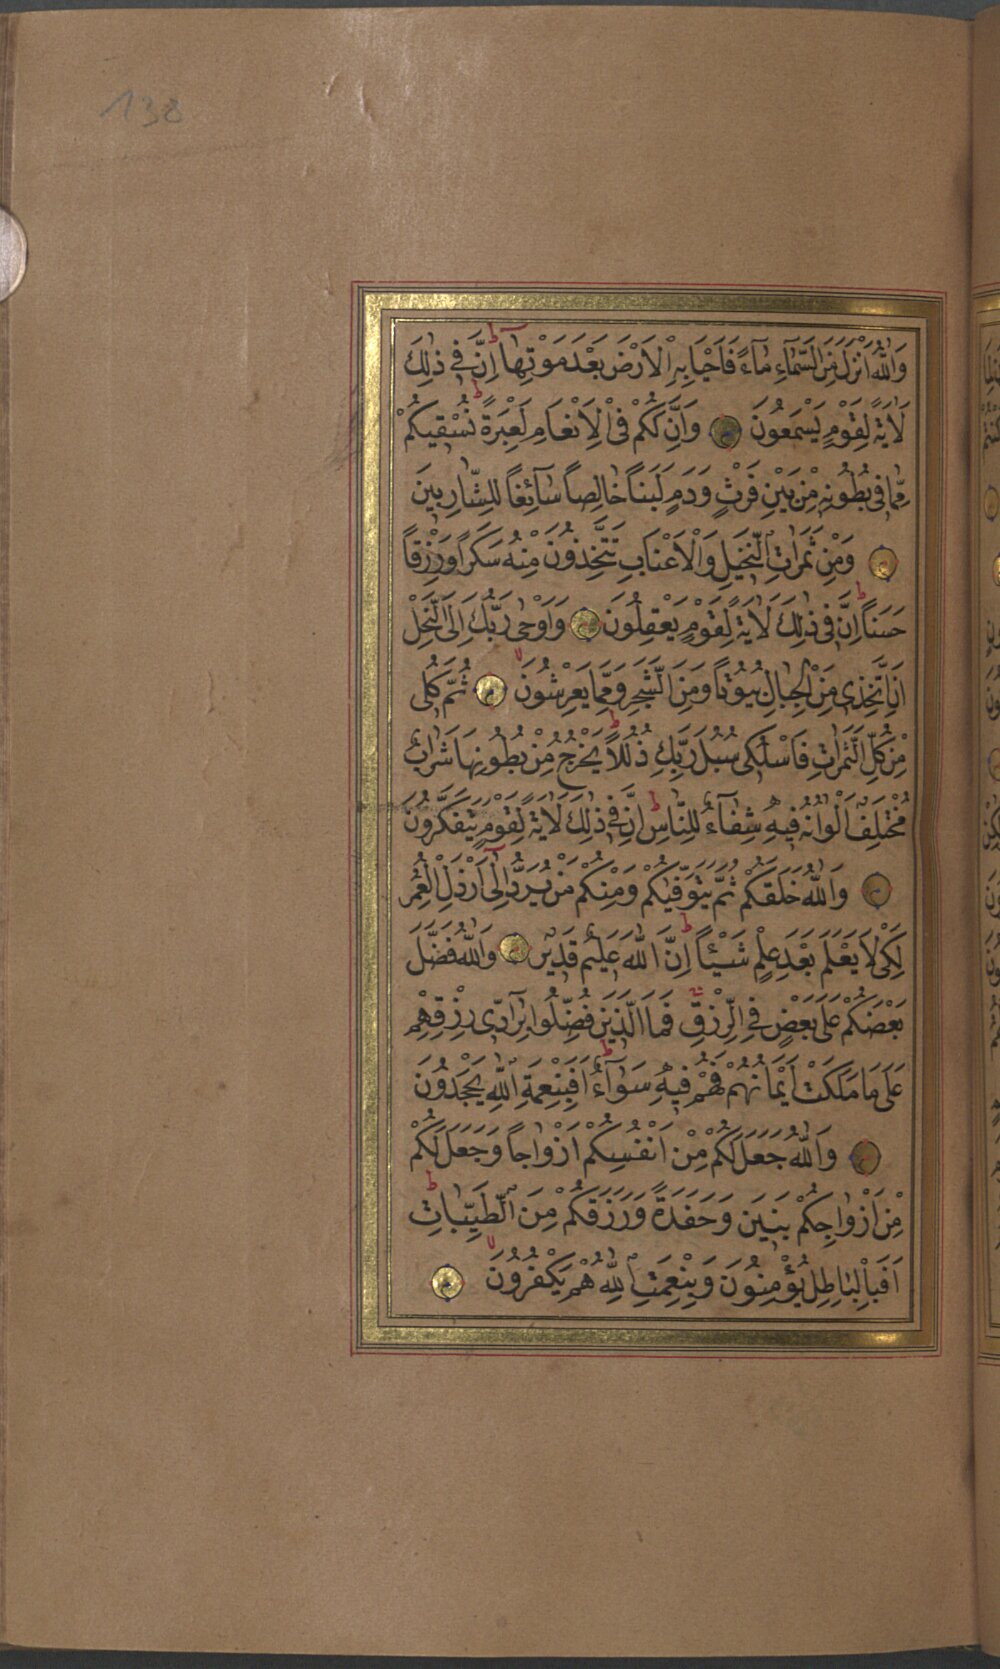 138
وَاللّٰهُ اَنْزَلَ مِنَ السَّمَٓاءِ مَٓاءً فَاَحْيَا بِهِ الْاَرْضَ بَعْدَ مَوْتِهَا اِنَّ فِي ذٰلِكَ
لَاٰيَةً لِقَوْمٍ يَسْمَعُونَ وَاِنَّ لَكُمْ فِي الْاَنْعَامِ لَعِبْرَةً نُسْقِيكُمْ
مِمَّا فِي بُطُونِهِ مِنْ بَيْنِ فَرْثٍ وَدَمٍ لَبَنًا خَالِصًا سَٓائِغًا لِلشَّارِبِينَ
وَمِنْ ثَمَرَاتِ النَّخِيلِ وَالْاَعْنَابِ تَتَّخِذُونَ مِنْهُ سَكَرًا وَرِزْقًا
حَسَنًا اِنَّ فِي ذٰلِكَ لَاٰيَةً لِقَوْمٍ يَعْقِلُونَ وَاَوْحٰى رَبُّكَ اِلَى النَّحْلِ
اَنِ اتَّخِذِي مِنَ الْجِبَالِ بُيُوتًا وَمِنَ الشَّجَرِ وَمِمَّا يَعْرِشُونَ ثُمَّ كُلِي
مِنْ كُلِّ الثَّمَرَاتِ فَاسْلُكِي سُبُلَ رَبِّكِ ذُلُلًا يَخْرُجُ مِنْ بُطُونِهَا شَرَابٌ
مُخْتَلِفٌ اَلْوَانُهُ فِيهِ شِفَٓاءٌ لِلنَّاسِ اِنَّ فِي ذٰلِكَ لَاٰيَةً لِقَوْمٍ يَتَفَكَّرُونَ
وَاللّٰهُ خَلَقَكُمْ ثُمَّ يَتَوَفّٰيكُمْ وَمِنْكُمْ مَنْ يُرَدُّ اِلٰٓى اَرْذَلِ الْعُمُرِ
لِكَيْ لَا يَعْلَمَ بَعْدَ عِلْمٍ شَيْـًٔا اِنَّ اللّٰهَ عَلِيمٌ قَدِيرٌ وَاللّٰهُ فَضَّلَ
بَعْضَكُمْ عَلٰى بَعْضٍ فِي الرِّزْقِ فَمَا الَّذِينَ فُضِّلُوا بِرَٓادِّي رِزْقِهِمْ
عَلٰى مَا مَلَكَتْ اَيْمَانُهُمْ فَهُمْ فِيهِ سَوَٓاءٌ اَفَبِنِعْمَةِ اللّٰهِ يَجْحَدُونَ
وَاللّٰهُ جَعَلَ لَكُمْ مِنْ اَنْفُسِكُمْ اَزْوَاجًا وَجَعَلَ لَكُمْ
مِنْ اَزْوَاجِكُمْ بَنِينَ وَحَفَدَةً وَرَزَقَكُمْ مِنَ الطَّيِّبَاتِ
اَفَبِالْبَاطِلِ يُؤْمِنُونَ وَبِنِعْمَتِ اللّٰهِ هُمْ يَكْفُرُونَ